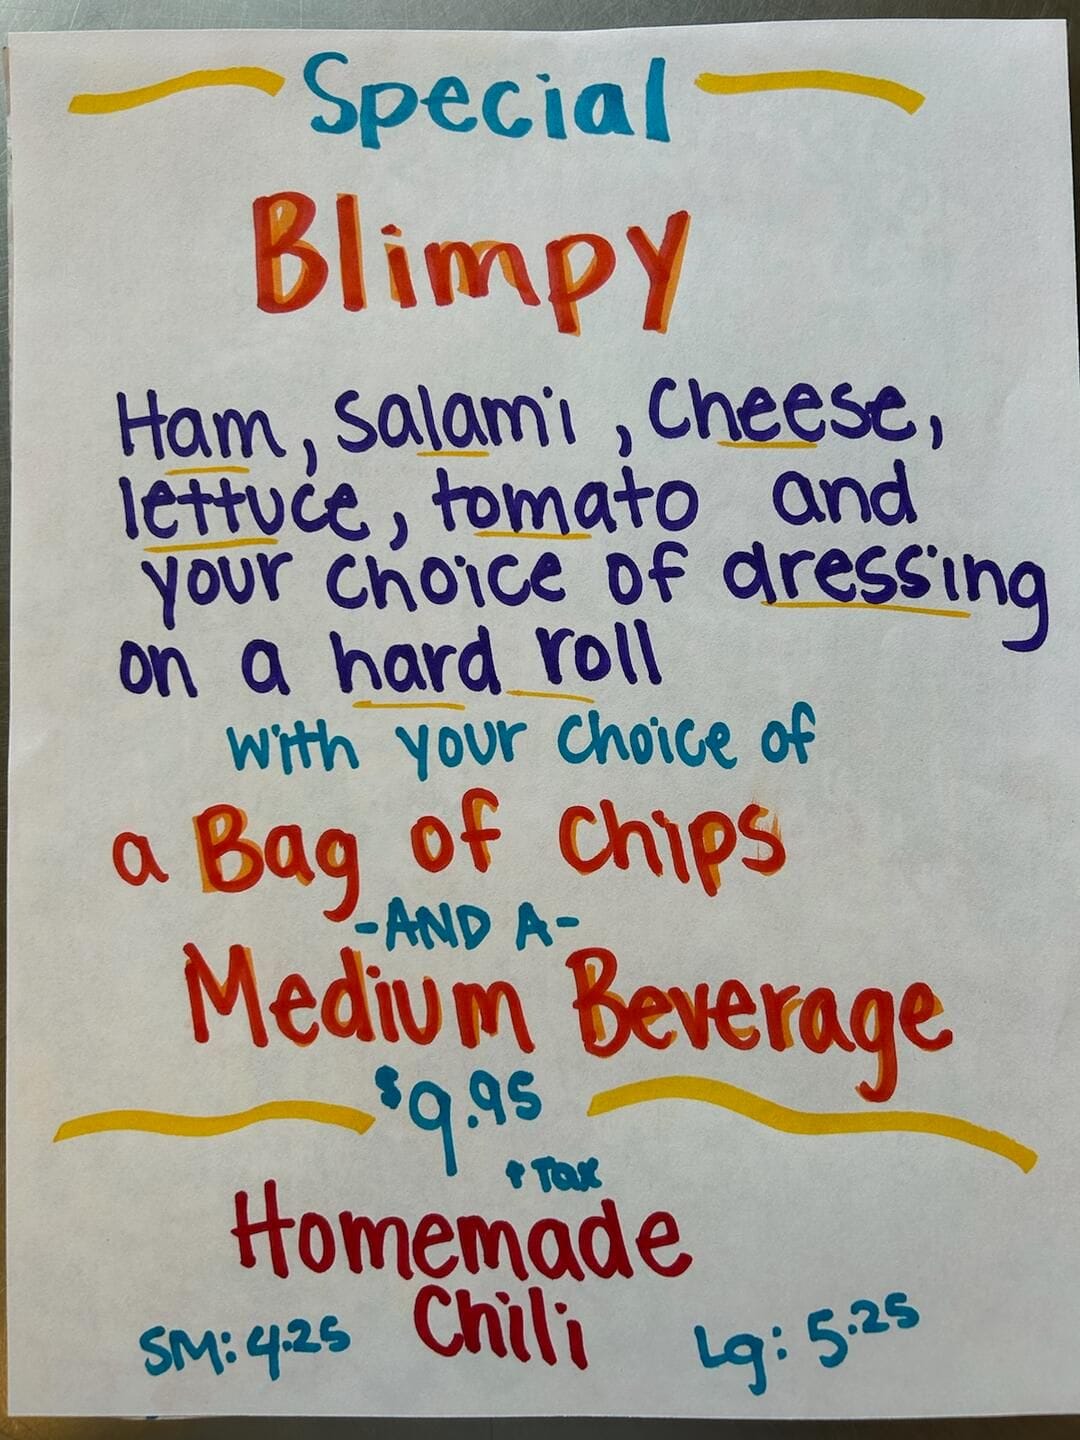 Special
Blimpy
Ham, Salami, Cheese,
lettuce, tomato and
your choice of dressing
on a hard roll
with your choice of
a Bag of Chips
-AND A-
Medium Beverage
$9.95
+ Tax
Homemade
Chili
SM: 4.25 Lg: 5.25